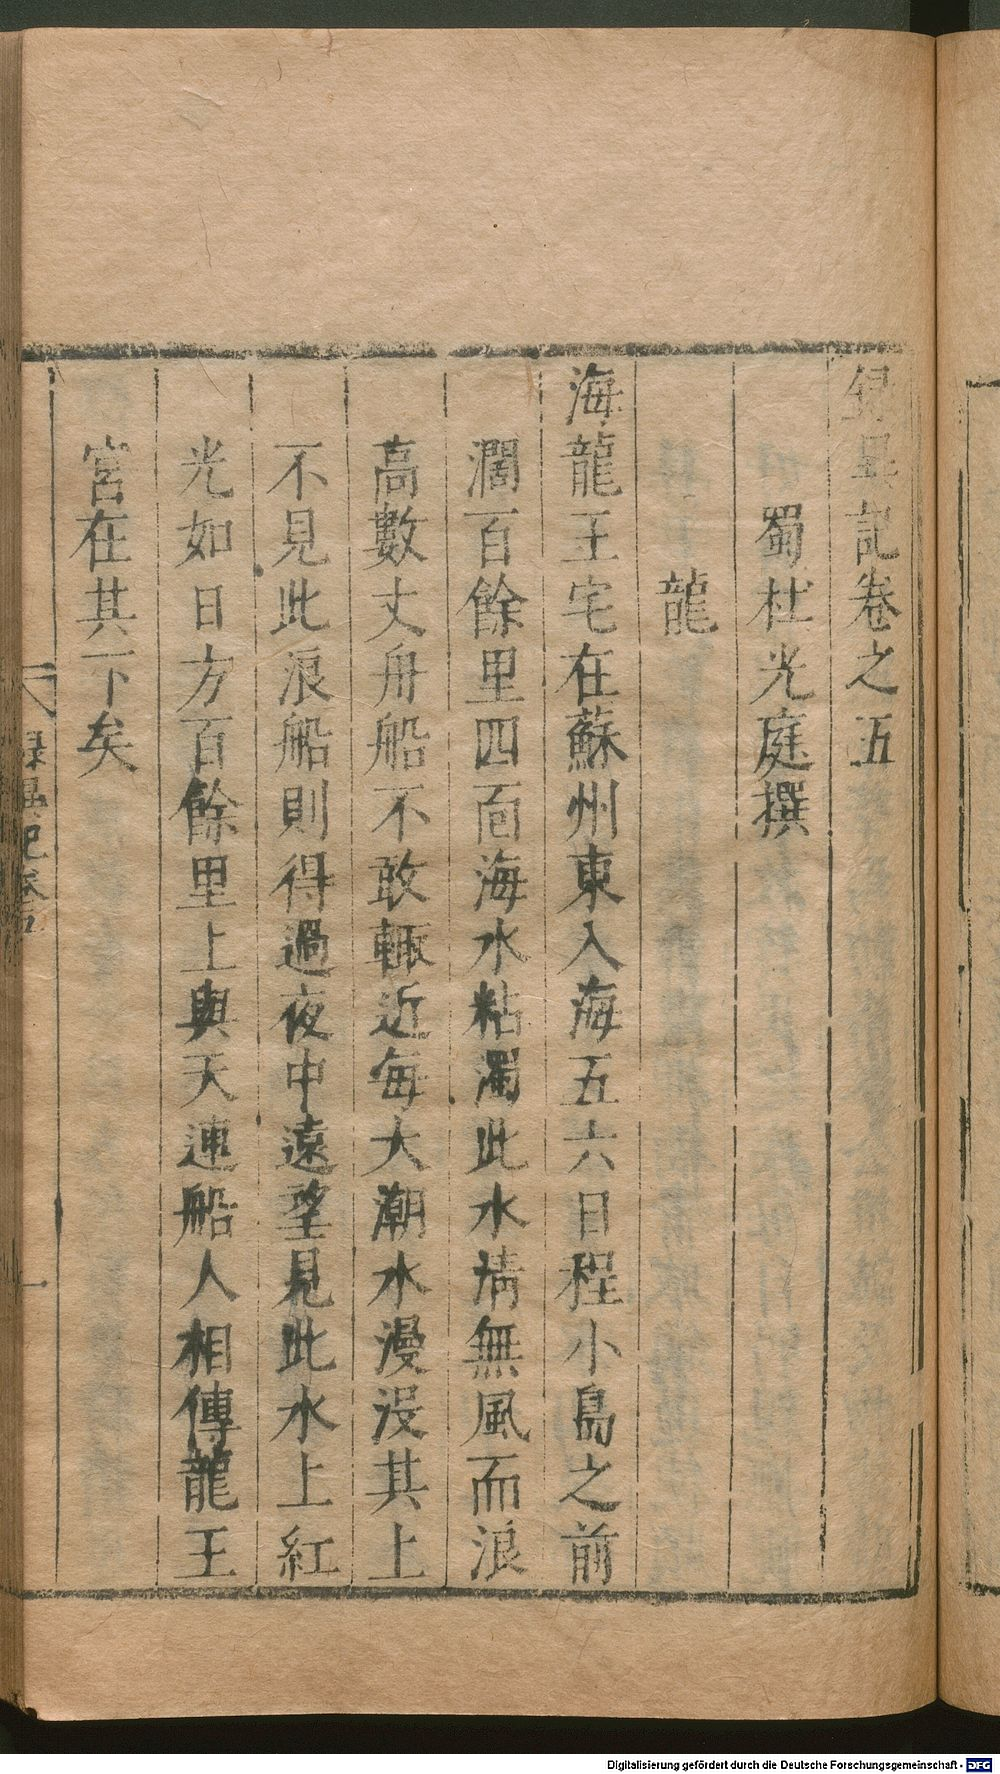 錄異記卷之五
蜀杜光庭撰
龍
海龍王宅在蘇州東入海五六日程小島之前
濶百餘里四面海水粘濁此水清無風而浪
高數丈舟船不敢輙近每大潮水漫没其上
不見此浪船則得過夜中遠望見此水上紅
光如日方百餘里上與天連船人相傳龍王
宮在其下矣
錄異記卷五
一
Digitalisierung gefördert durch die Deutsche Forschungsgemeinschaft - DFG